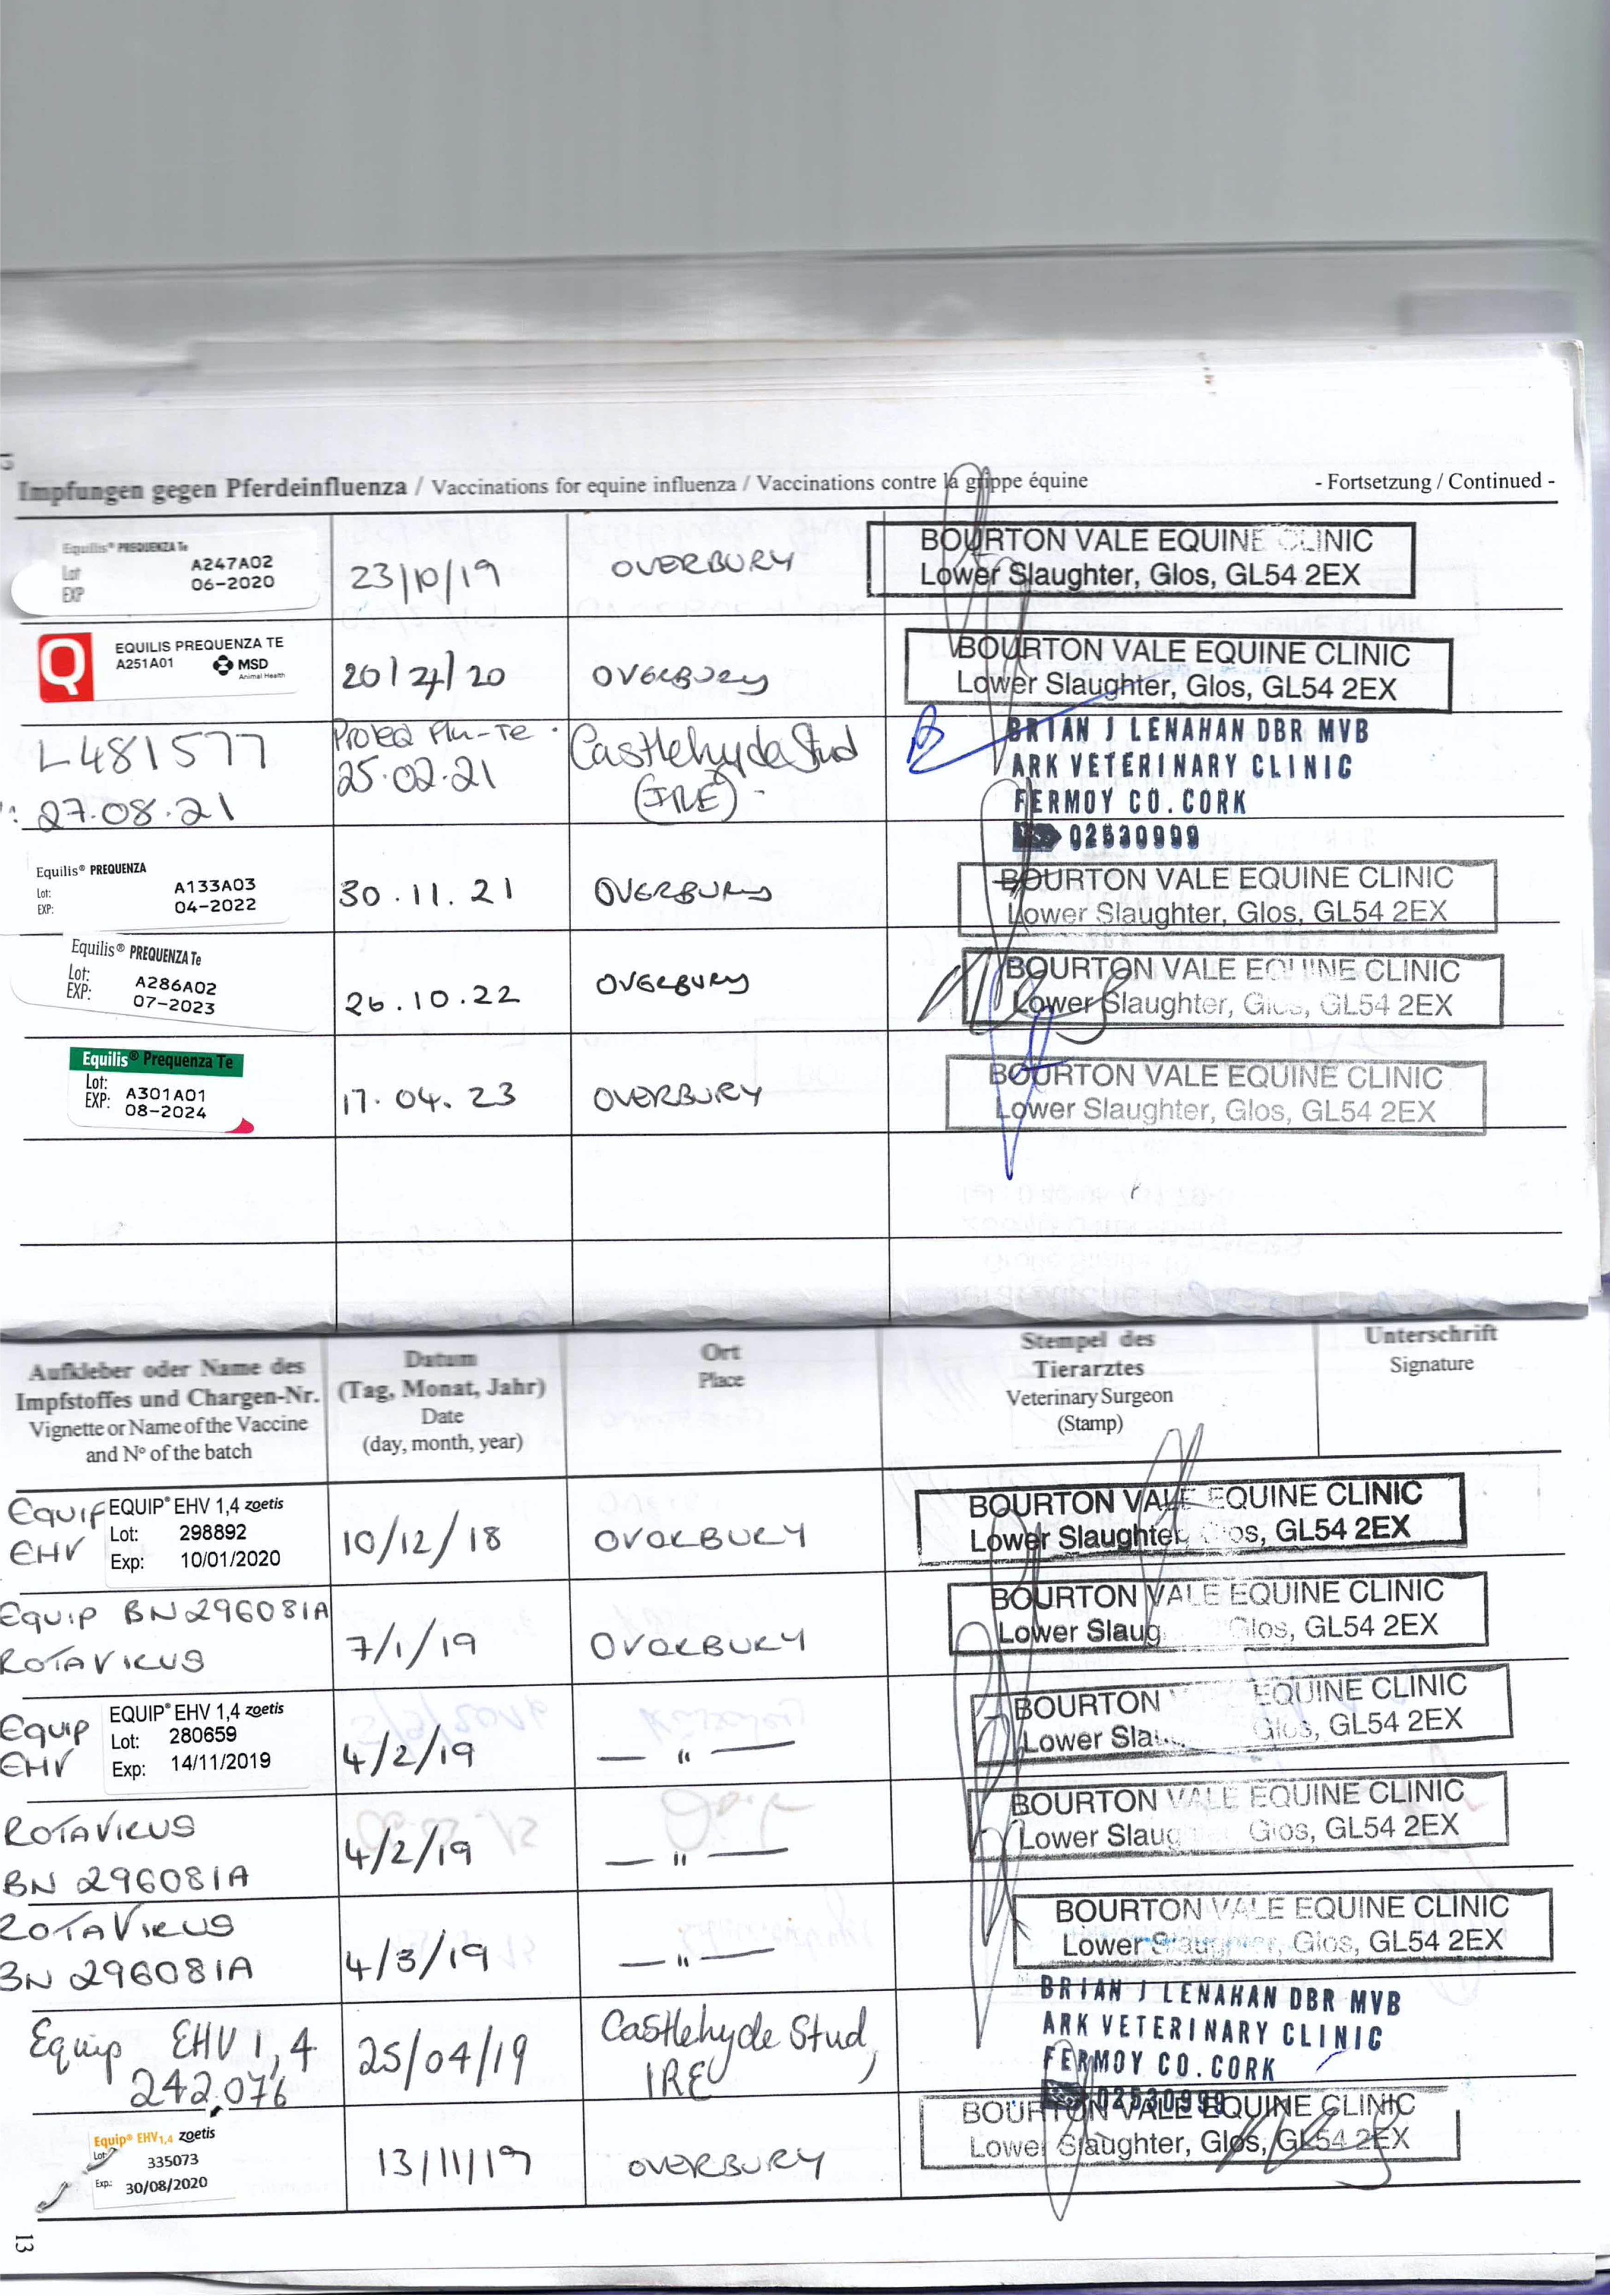 Impfungen gegen Pferdeinfluenza / Vaccinations for equine influenza / Vaccinations contre la grippe équine - Fortsetzung / Continued -
Equilis® PREQUENZA Te
Lot A247A02
EXP 06-2020
23/10/19
OVERBURY
BOURTON VALE EQUINE CLINIC
Lower Slaughter, Glos, GL54 2EX
Q
EQUILIS PREQUENZA TE
A251A01 MSD
Animal Health
20/4/20
OVERBURY
BOURTON VALE EQUINE CLINIC
Lower Slaughter, Glos, GL54 2EX
L481577
27.08.21
Proteq Flu-Te
25.02.21
Castlehyde Stud
(IRE)
BRIAN J LENAHAN DBR MVB
ARK VETERINARY CLINIC
FERMOY CO. CORK
02530999
Equilis® PREQUENZA
Lot: A133A03
EXP: 04-2022
30.11.21
OVERBURY
BOURTON VALE EQUINE CLINIC
Lower Slaughter, Glos, GL54 2EX
Equilis® PREQUENZA Te
Lot: A286A02
EXP: 07-2023
26.10.22
OVERBURY
BOURTON VALE EQUINE CLINIC
Lower Slaughter, Glos, GL54 2EX
Equilis® Prequenza Te
Lot: A301A01
EXP: 08-2024
17.04.23
OVERBURY
BOURTON VALE EQUINE CLINIC
Lower Slaughter, Glos, GL54 2EX
Aufkleber oder Name des
Impfstoffes und Chargen-Nr.
Vignette or Name of the Vaccine
and Nº of the batch
Datum
(Tag, Monat, Jahr)
Date
(day, month, year)
Ort
Place
Stempel des
Tierarztes
Veterinary Surgeon
(Stamp)
Unterschrift
Signature
Equip
EHV
EQUIP® EHV 1,4 zoetis
Lot: 298892
Exp: 10/01/2020
10/12/18
OVERBURY
BOURTON VALE EQUINE CLINIC
Lower Slaughter, Glos, GL54 2EX
Equip BN296081A
ROTAVIRUS
7/1/19
OVERBURY
BOURTON VALE EQUINE CLINIC
Lower Slaug Glos, GL54 2EX
Equip
EHV
EQUIP® EHV 1,4 zoetis
Lot: 280659
Exp: 14/11/2019
4/2/19
— " —
BOURTON EQUINE CLINIC
Lower Slau Glos, GL54 2EX
ROTAVIRUS
BN 296081A
4/2/19
— " —
BOURTON VALE EQUINE CLINIC
Lower Slaug Glos, GL54 2EX
ROTAVIRUS
BN 296081A
4/3/19
— " —
BOURTON VALE EQUINE CLINIC
Lower Slaughter, Glos, GL54 2EX
Equip EHV 1,4
242076
25/04/19
Castlehyde Stud,
IRE
BRIAN J LENAHAN DBR MVB
ARK VETERINARY CLINIC
FERMOY CO. CORK
02530999
Equip® EHV1,4 zoetis
Lot: 335073
Exp: 30/08/2020
13/11/19
OVERBURY
BOURTON VALE EQUINE CLINIC
Lower Slaughter, Glos, GL54 2EX
13